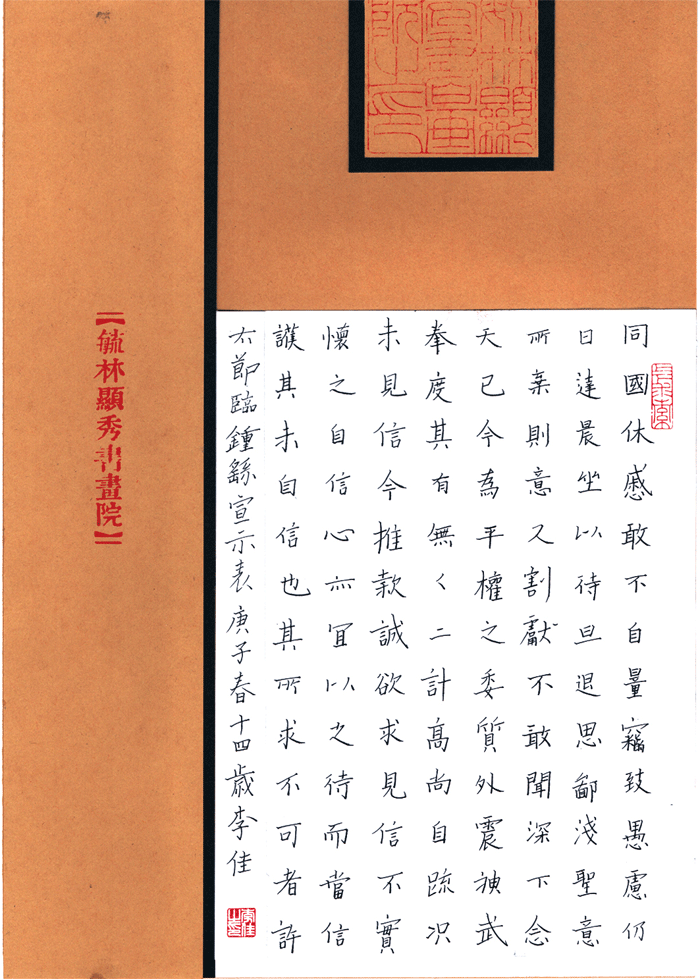 【毓林顯秀書畫院】
同國休慼敢不自量竊致愚慮仍
日達晨坐以待旦退思鄙淺聖意
所棄則意又割獻不敢聞深下念
天已今為平權之委質外震神武
拳度其有無〻二計高尚自疏况
未見信今推款誠欲求見信不實
懷之自信心亦宜以之待而當信
護其未自信也其所求不可者許
右節臨鍾繇宣示表庚子春十四歲李佳